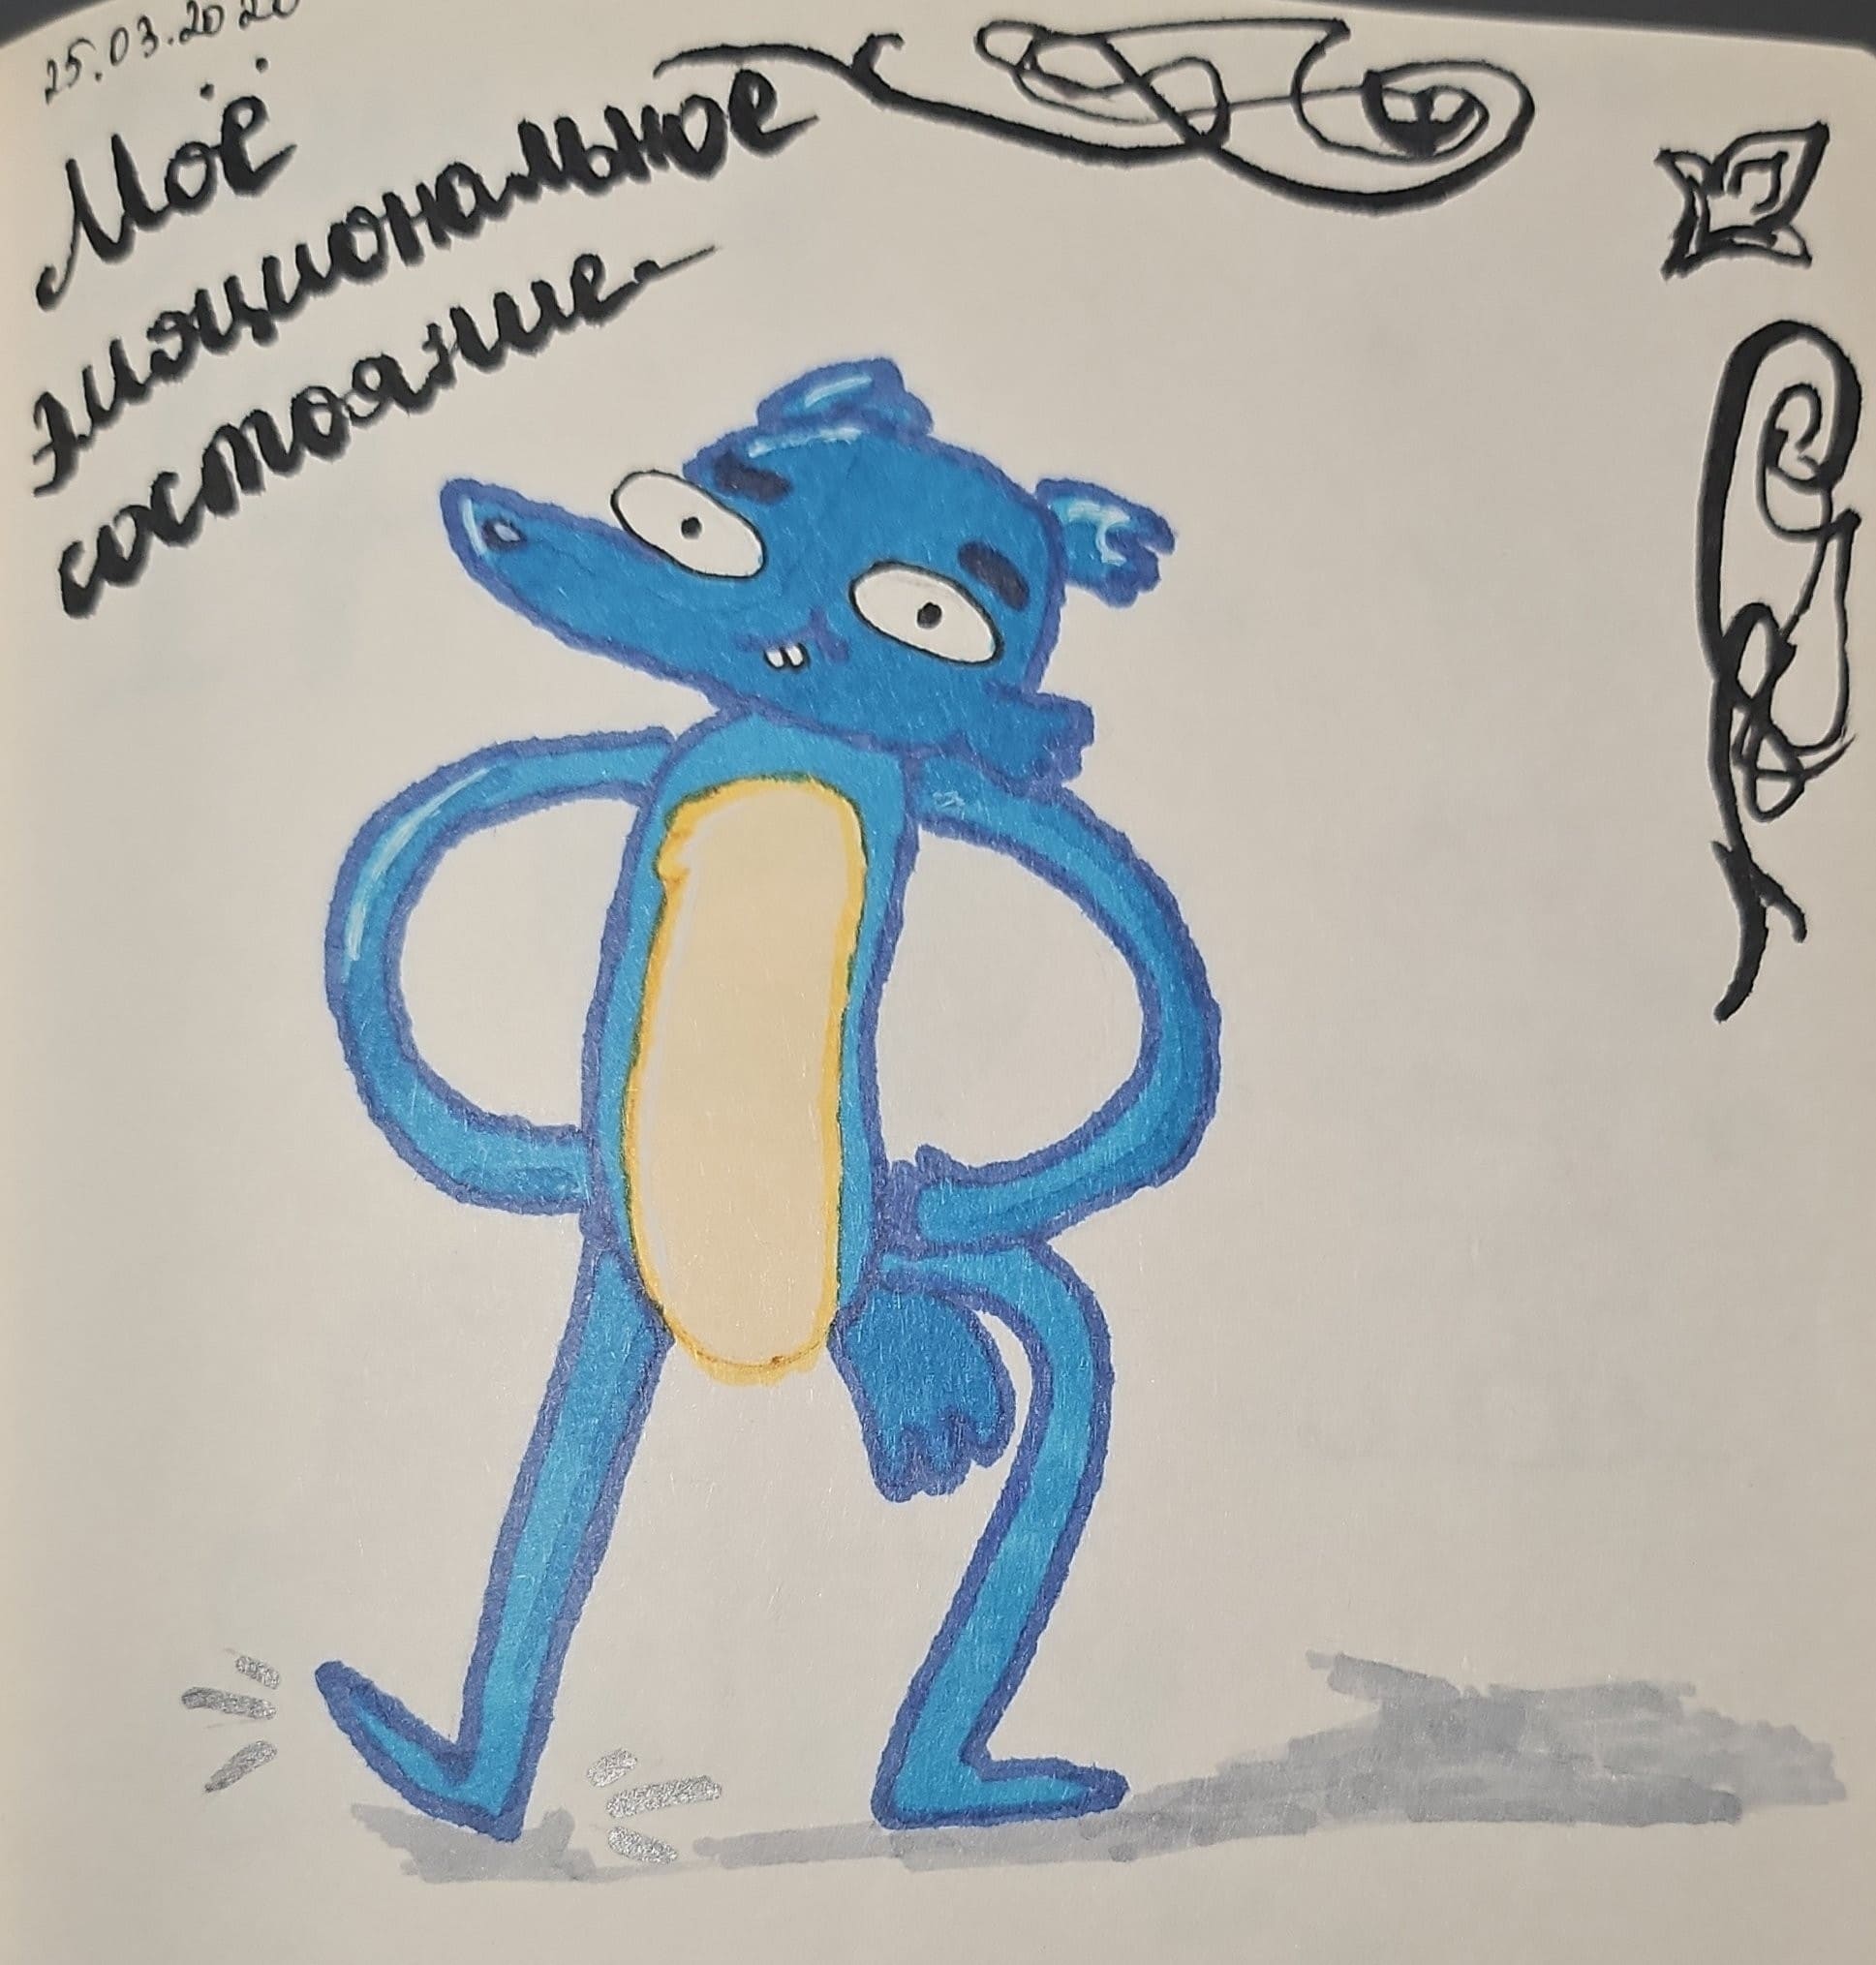 25.03.2020
Моё
эмоциональное
состояние